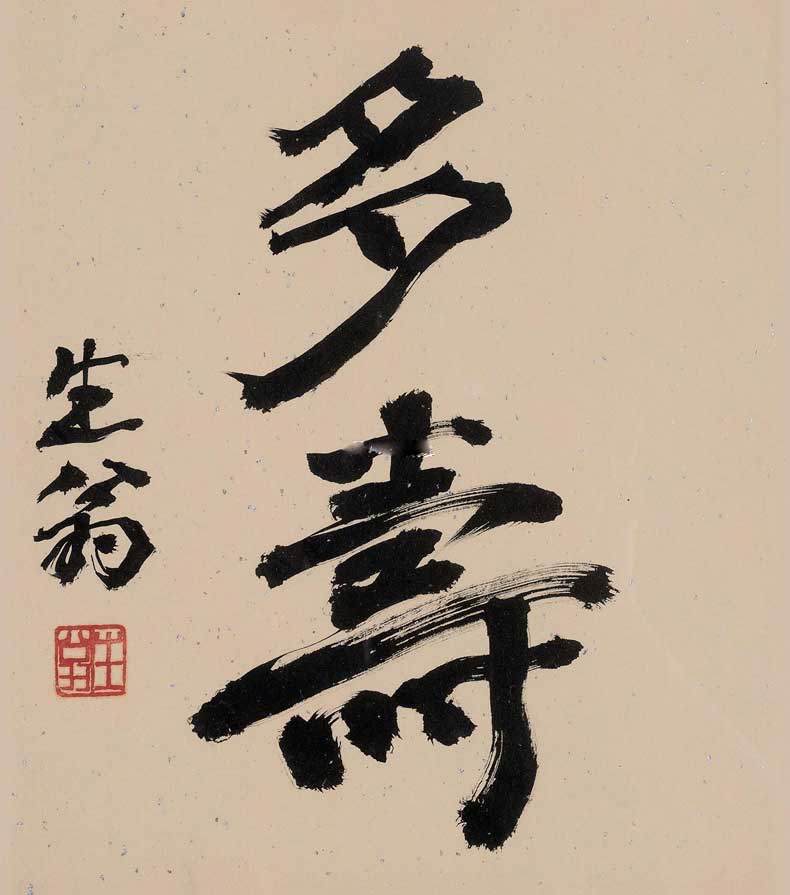 多壽
生翁